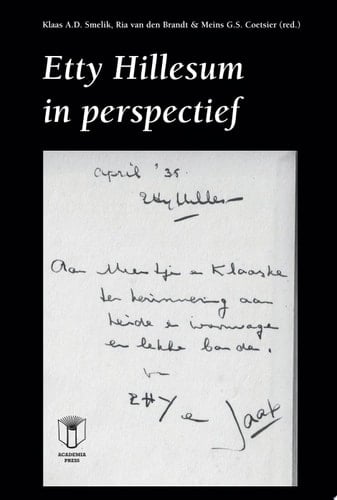 Klaas A.D. Smelik, Ria van den Brandt & Meins G.S. Coetsier (red.)
Etty Hillesum
in perspectief
april '35
Etty Hilles
Aan Meentje en Klaaske
ter herinnering aan
heide e
en lekke banden.
van
Etty en Jaap
ACADEMIA
PRESS